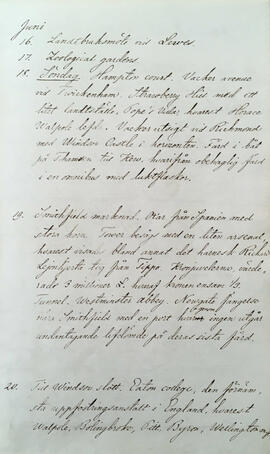 Juni
16. Landtbruksmöte vid Lewes
17. Zoological gardens
18. Söndag. Hampton court. Vacker avenue
vid Twickenham. Strawberry Hill med ett
litet landtställe, Pope's villa, hvarest Horace
Walpole lefd. Vacker utsigt vid Richmond
med Windsor Castle i horizonten. Färd i båt
på Themsen till Kew, hvarifrån obehaglig färd
i en omnibus med luktflaskor.
19. Smithfield marknad. Oxar från Spanien med
stora horn. Tower besågs med en liten arsenal,
hvarest visas bland annat det harnesk Richard
Lejonhjerta tog från Tippo. Kronjuvelerna, värde-
rade 3 millioner £ hvaraf kronen ensam 1/3.
Tunnel. Westminster Abbey. Newgate fängelse
nära Smithfield med en port genom hvar ingen utgår
undantagande lifdömde på deras sista färd.
20. Till Windsor slott. Eaton college, den förnäm-
sta uppfostringsanstalt i England, hvarest
Walpole, Bolingbroke, Pitt, Byron, Wellington og